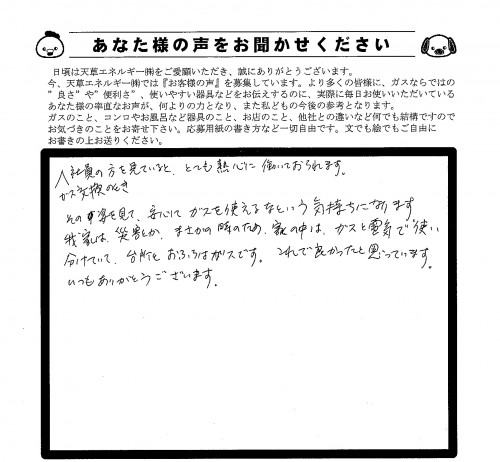 あなた様の声をお聞かせください
日頃は天草エネルギー㈱をご愛顧いただき、誠にありがとうございます。
今、天草エネルギー㈱では『お客様の声』を募集しています。より多くの皆様に、ガスならではの
”良さ”や”便利さ”、使いやすい器具などをお伝えするのに、実際に毎日お使いいただいている
あなた様の率直なお声が、何よりの力となり、また私どもの今後の参考となります。
ガスのこと、コンロやお風呂など器具のこと、お店のこと、他社との違いなど何でも結構ですので
お気づきのことをお寄せ下さい。応募用紙の書き方など一切自由です。文でも絵でもご自由に
お書きの上お送りください。
社員の方を見ていると、とても熱心に働いておられます。
ガス交換のとき
その姿を見て、安心してガスを使えるなという気持ちになります。
我家は、災害とか、まさかの時のため、家の中は、ガスと電気で使い
分けていて、台所とおふろはガスです。これで良かったと思っています。
いつもありがとうございます。